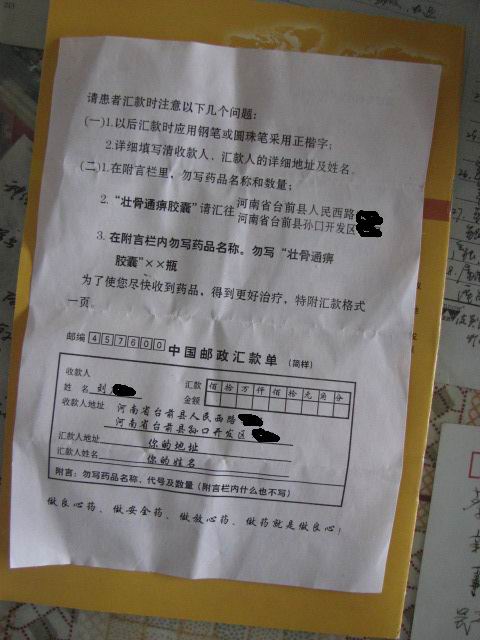 请患者汇款时注意以下几个问题：
(一)1.以后汇款时应用钢笔或圆珠笔采用正楷字；
2.详细填写清收款人、汇款人的详细地址及姓名。
(二)1.在附言栏里，勿写药品名称和数量；
2.“壮骨通痹胶囊”请汇往 河南省台前县人民西路
河南省台前县孙口开发区
3.在附言栏内勿写药品名称。勿写“壮骨通痹
胶囊”××瓶
为了使您尽快收到药品，得到更好治疗，特附汇款格式
一页。
邮编 457600 中国邮政汇款单 (简样)
收款人
姓 名 刘
汇款
金额
佰 拾 万 仟 佰 拾 元 角 分
收款人地址 河南省台前县人民西路
河南省台前县孙口开发区
汇款人地址 你的地址
汇款人姓名 你的姓名
附言：勿写药品名称、代号及数量（附言栏内什么也不写）
做良心药、做安全药、做放心药、做药就是做良心！